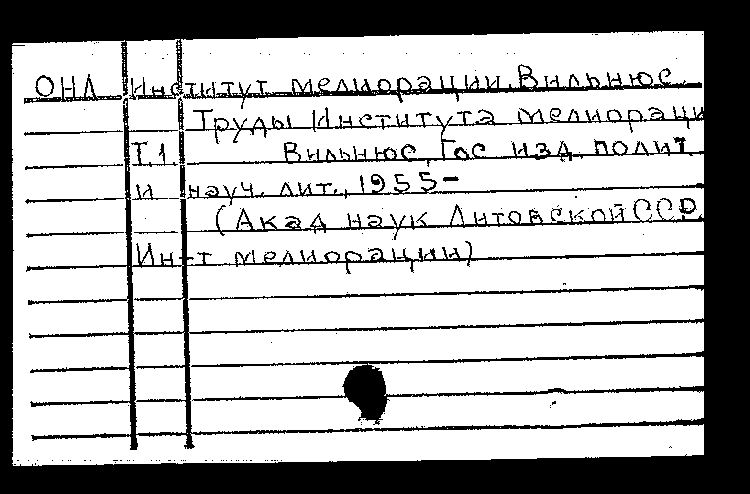 ОНЛ Институт мелиорации, Вильнюс.
Труды Института мелиораци
Т.1. Вильнюс, Гос изд. полит
и науч. лит., 1955-
(Акад наук Литовской ССР.
Ин-т мелиорации)